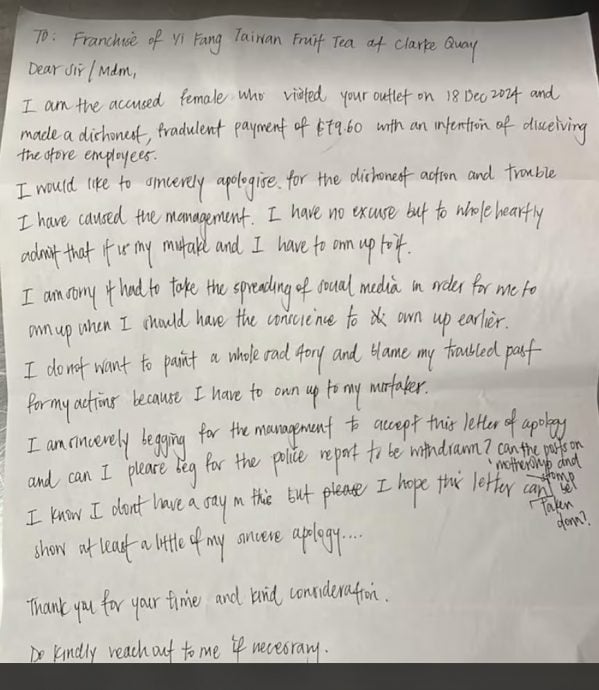 To: Franchise of Yi Fang Taiwan Fruit Tea at Clarke Quay
Dear Sir/Mdm,
I am the accused female who visited your outlet on 18 Dec 2024 and
made a dishonest, fradulent payment of $79.60 with an intention of disceiving
the store employees.
I would like to sincerely apologise for the dishonest action and trouble
I have caused the management. I have no excuse but to whole heartly
admit that it is my mistake and I have to own up to it.
I am sorry it had to take the spreading of social media in order for me to
own up when I should have the conscience to own up earlier.
I do not want to paint a whole sad story and blame my troubled past
for my actions because I have to own up to my mistakes.
I am sincerely begging for the management to accept this letter of apology
and can I please beg for the police report to be withdrawn? can the posts on
mothership and
stomp
be
taken
down?
I know I dont have a say in this but please I hope this letter can
show at least a little of my sincere apology....
Thank you for your time and kind consideration.
Do kindly reach out to me if necessary.